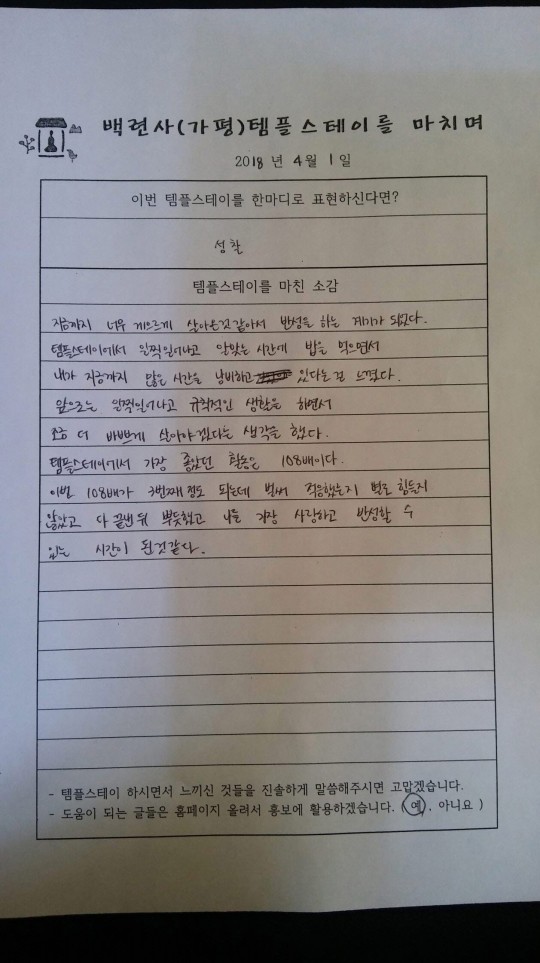 백련사(가평)템플스테이를 마치며
2018 년 4월 1일
이번 템플스테이를 한마디로 표현하신다면?
성찰
템플스테이를 마친 소감
지금까지 너무 게으르게 살아온것 같아서 반성을 하는 계기가 되었다.
템플스테이에서 일찍일어나고 알맞는 시간에 밥을 먹으면서
내가 지금까지 많은 시간을 낭비하고 있다는걸 느꼈다.
앞으로는 일찍일어나고 규칙적인 생활을 하면서
조금 더 바쁘게 살아야겠다는 생각을 했다.
템플스테이에서 가장 좋았던 활동은 108배이다.
이번 108배가 3번째 정도 되는데 벌써 적응했는지 별로 힘들지
않았고 다 끝낸 뒤 뿌듯했고 나를 가장 사랑하고 반성할 수
있는 시간이 된것 같다.
- 템플스테이 하시면서 느끼신 것들을 진솔하게 말씀해주시면 고맙겠습니다.
- 도움이 되는 글들은 홈페이지 올려서 홍보에 활용하겠습니다. ( 예 , 아니요 )